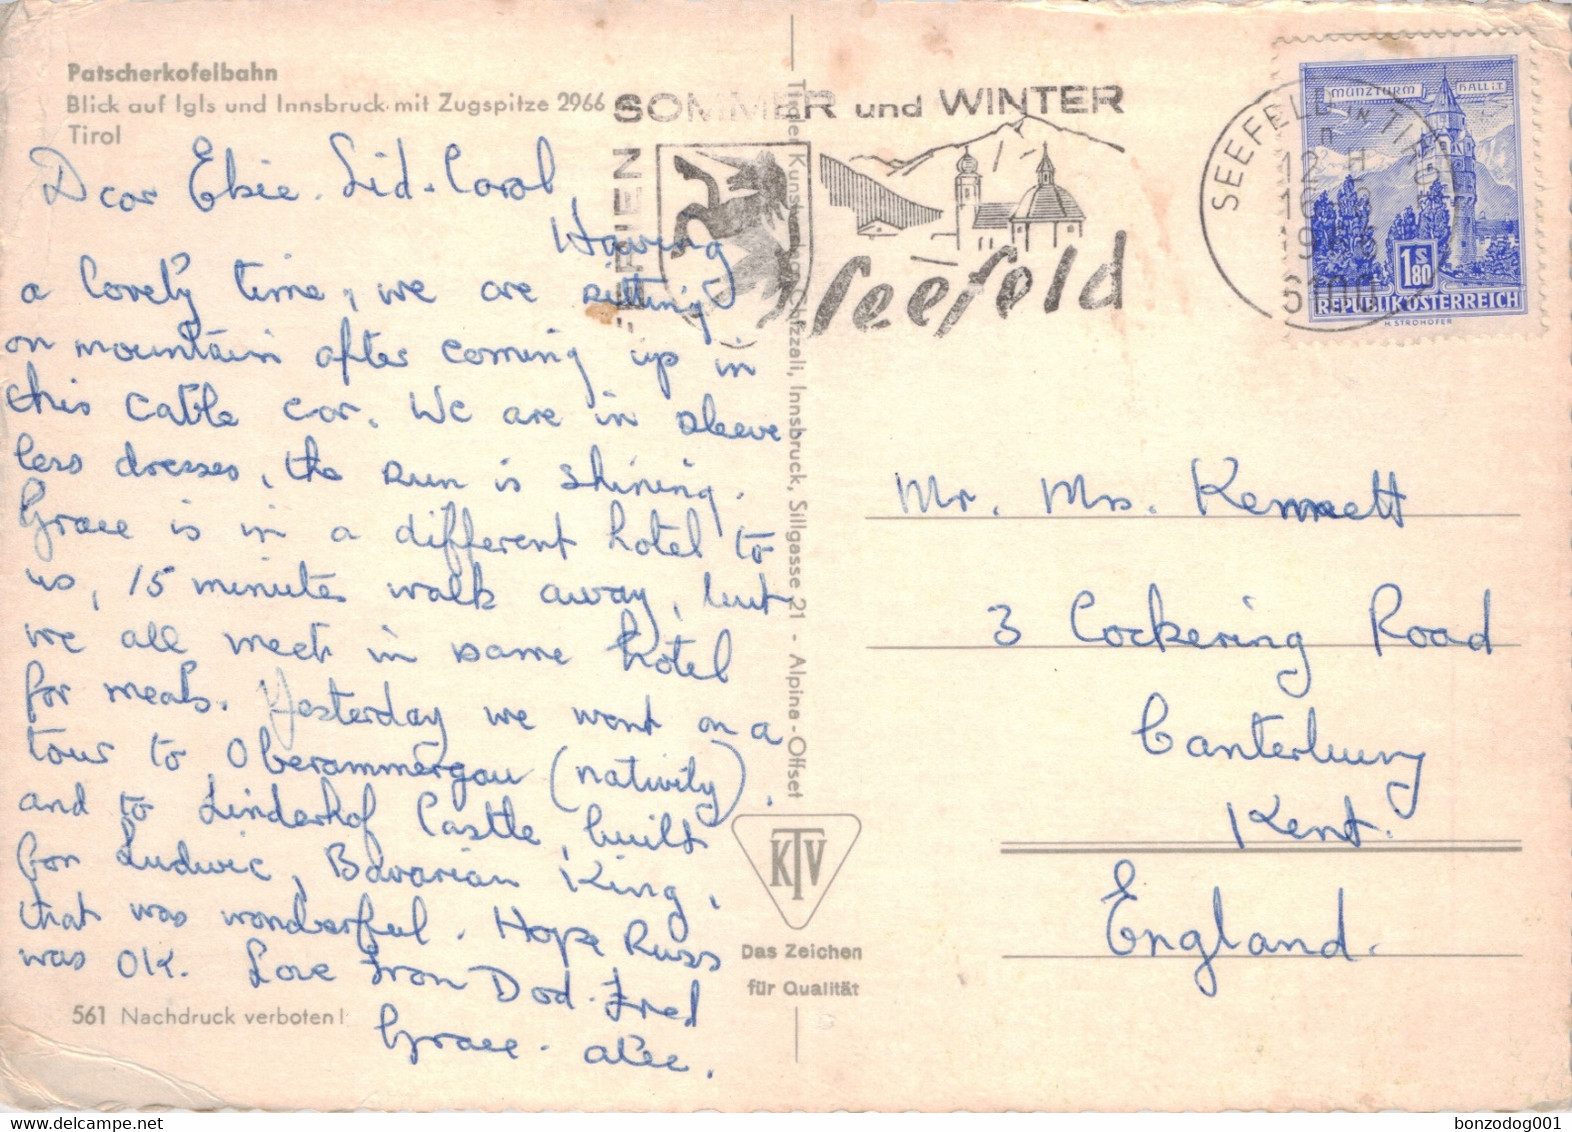 Patscherkofelbahn
Blick auf Igls und Innsbruck mit Zugspitze 2966
Tirol
Dear Elsie. Sid. Carol
Having
a lovely time, we are sitting
on mountain after coming up in
this cable car. We are in sleeve
less dresses, the sun is shining.
Grace is in a different hotel to
us, 15 minutes walk away, but
we all meet in same hotel
for meals. Yesterday we went on a
tour to Oberammergau (nativity),
and to Linderhof Castle, built
for Ludwic, Bavarian King,
that was wonderful. Hope Russ
was OK. Love from Dod. Fred
Grace. alec.
561 Nachdruck verboten!
Tiroler Kunstverlag Chizzali, Innsbruck, Sillgasse 21 - Alpina-Offset
KTV
Das Zeichen
für Qualität
FERIEN
SOMMER und WINTER
Seefeld
SEEFELD IN TIROL
12 H
MÜNZTURM HALL i.T.
1 S 80
REPUBLIK ÖSTERREICH
H. STROHOFER
Mr. Mrs. Kennett
3 Cockering Road
Canterbury
Kent.
England.
bonzodog001